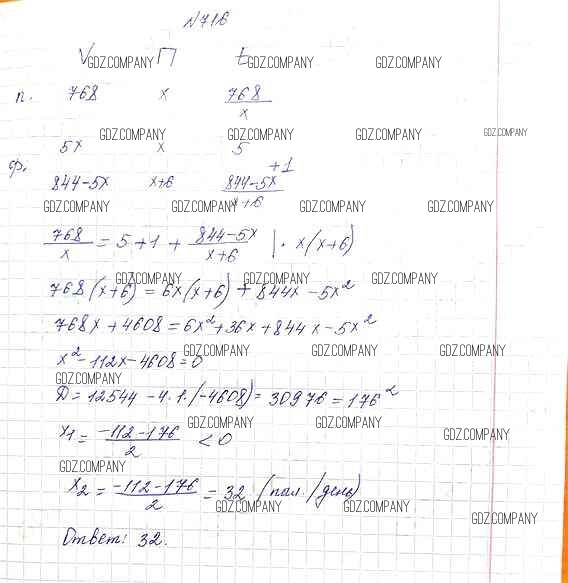 N716
V П t
GDZ.COMPANY GDZ.COMPANY GDZ.COMPANY
п. 768 x 768/x
GDZ.COMPANY GDZ.COMPANY GDZ.COMPANY GDZ.COMPANY
5x x 5
ф. +1
844-5x x+6 844-5x/x+6
GDZ.COMPANY GDZ.COMPANY GDZ.COMPANY GDZ.COMPANY
768/x = 5+1+ 844-5x/x+6 | · x(x+6)
GDZ.COMPANY GDZ.COMPANY GDZ.COMPANY
768(x+6) = 6x(x+6) + 844x - 5x²
768x + 4608 = 6x² + 36x + 844x - 5x²
GDZ.COMPANY GDZ.COMPANY GDZ.COMPANY
x² - 112x - 4608 = 0
GDZ.COMPANY
D = 12544 - 4·1·(-4608) = 30976 = 176²
GDZ.COMPANY GDZ.COMPANY GDZ.COMPANY
x₁ = -112-176/2 < 0
GDZ.COMPANY
x₂ = -112-176/2 = 32 (пол./день)
GDZ.COMPANY GDZ.COMPANY GDZ.COMPANY
Ответ: 32.